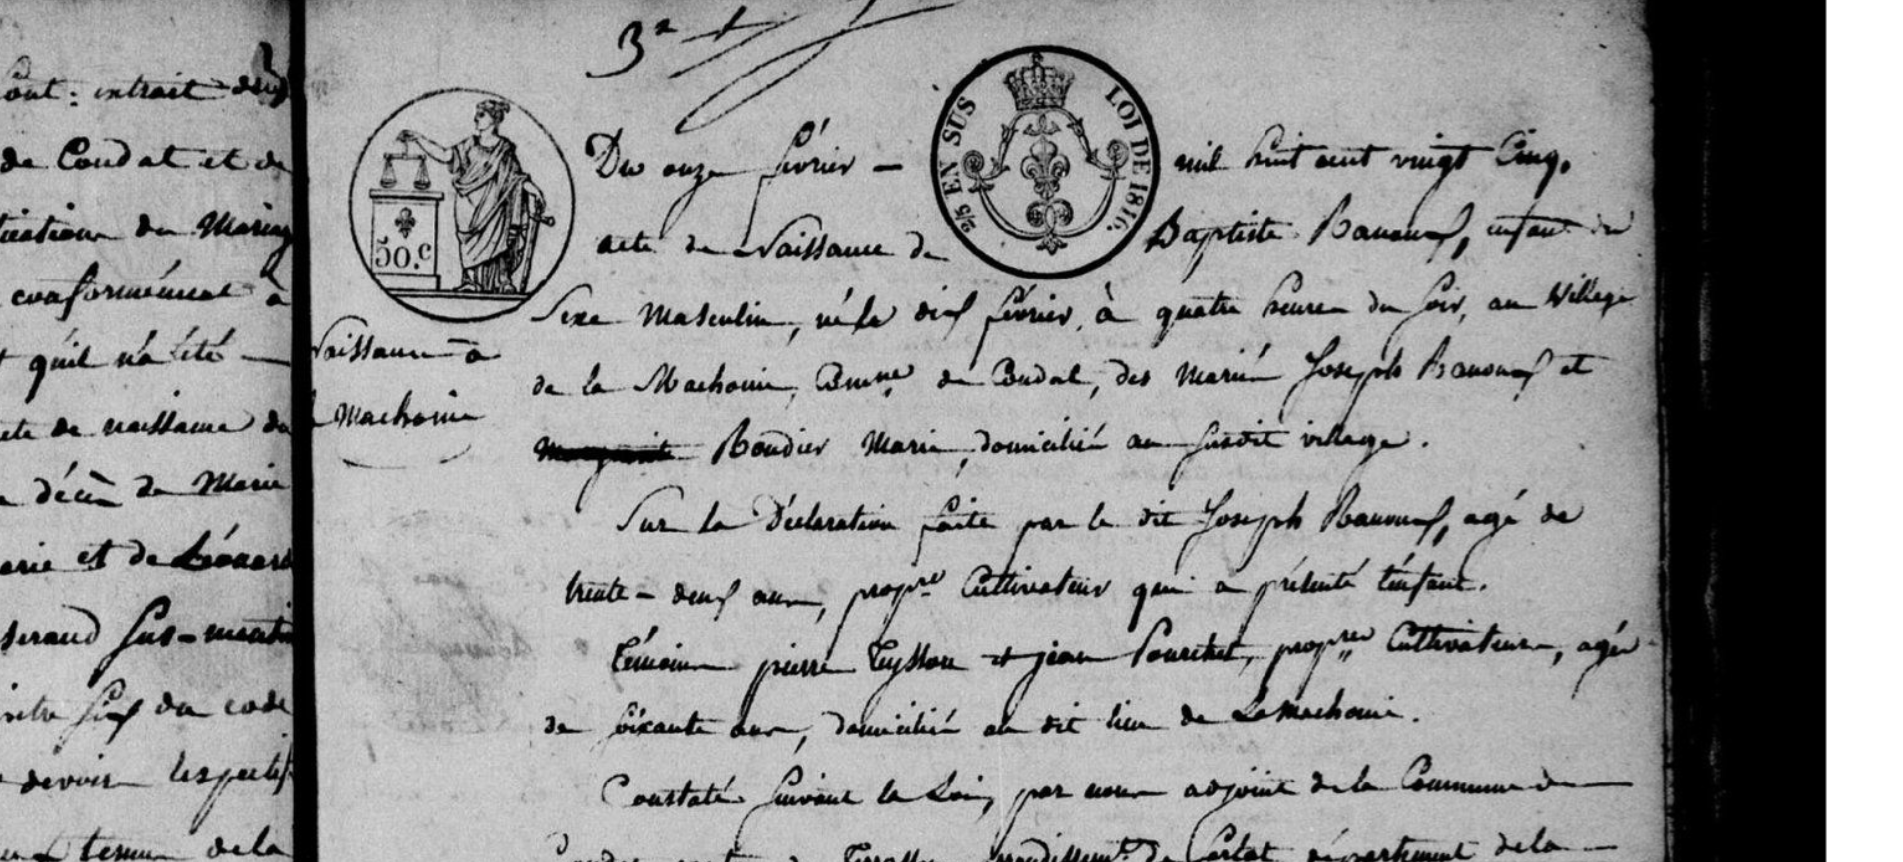 ont : extrait des
de Condat et de
ication du Mariag
conformément à
qu'il n'a été
cte de naissance du
décès de Marie
arie et de Léonard
serand sus-menti
six du code
devoir respectif
tenu dela
3e
50.c
2/5 EN SUS
LOI DE 1816.
Du onze février — mil huit cent vingt Cinq.
acte de Naissance de Baptiste enfant du
Sexe Masculin, né le dix février, à quatre heures du soir, au Village
de la Machonie, Comne de Condat, des Mariés Joseph et
Marguerite Roudier Marie, domiciliés au susdit village.
Naissance à
la Machonie
Sur la Déclaration faite par le dit Joseph agé de
trente-deux ans, propre Cultivateur qui a présenté l'enfant.
Témoins pierre Teyssou et jean propres Cultivateurs, agés
de soixante ans, domiciliés au dit lieu de La Machonie.
Constaté suivant la Loi, par nous adjoint de la Commune de
Condat canton de Terrasson arrondissemt de Sarlat département dela